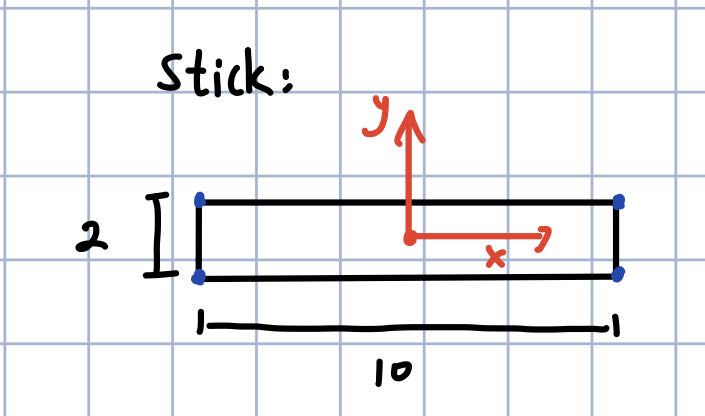 Stick:
y
2
x
10